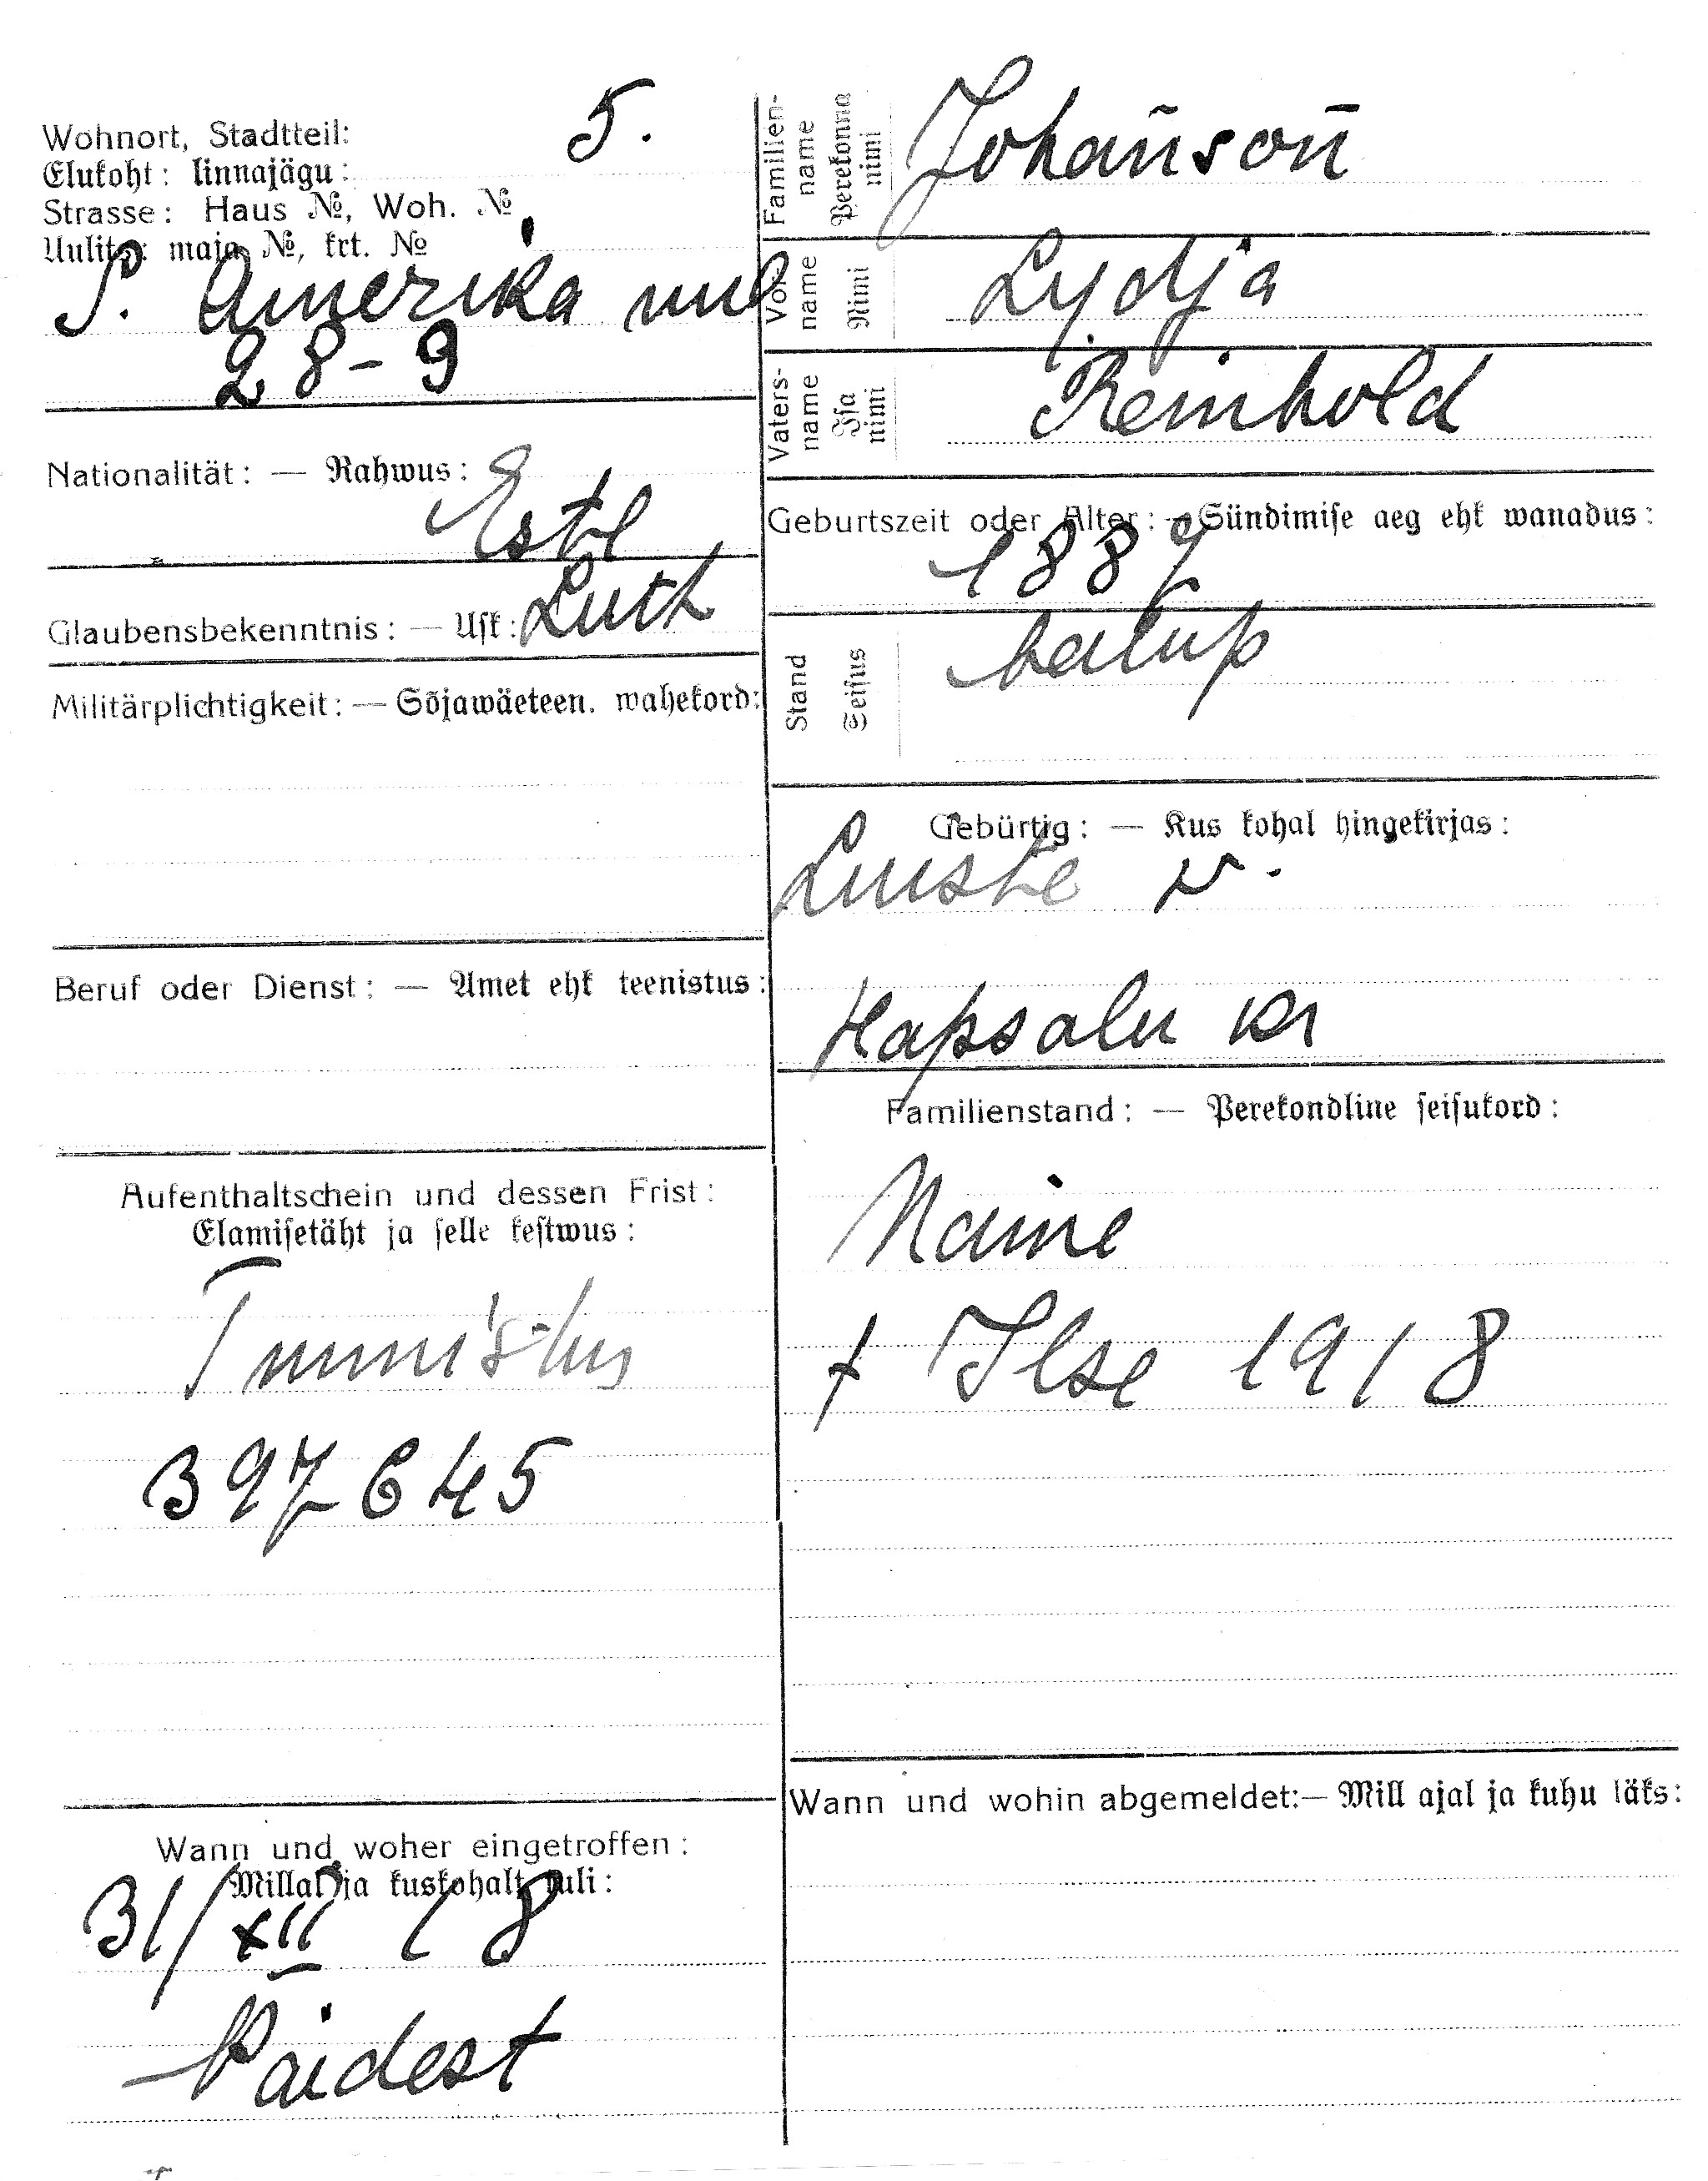 Wohnort, Stadtteil: 5.
Elukoht: linnajägu:
Strasse: Haus №, Woh. №
Uulits: maja №, krt. №
S. Amerika uul
28-9
Nationalität: — Rahwus:
Estl
Glaubensbekenntnis: — Usk: Luth
Militärplichtigkeit: — Sõjawäeteen. wahekord:
Beruf oder Dienst: — Amet ehk teenistus:
Aufenthaltschein und dessen Frist:
Elamisetäht ja selle kestwus:
Tunnistus
397645
Wann und woher eingetroffen:
Millal ja kuskohalt tuli:
31/XII 18
Paidest
Familien-
name
Perekonna
nimi
Johan̄son̄
Vor-
name
Nimi
Lydja
Vaters-
name
Isa
nimi
Reinhold
Geburtszeit oder Alter: — Sündimise aeg ehk wanadus:
1887
Stand
Seisus
talup
Gebürtig: — Kus kohal hingekirjas:
w.
Hapsalu Kr
Familienstand: — Perekondline seisukord:
Naine
† Ilse 1918
Wann und wohin abgemeldet:— Mill ajal ja kuhu läks: